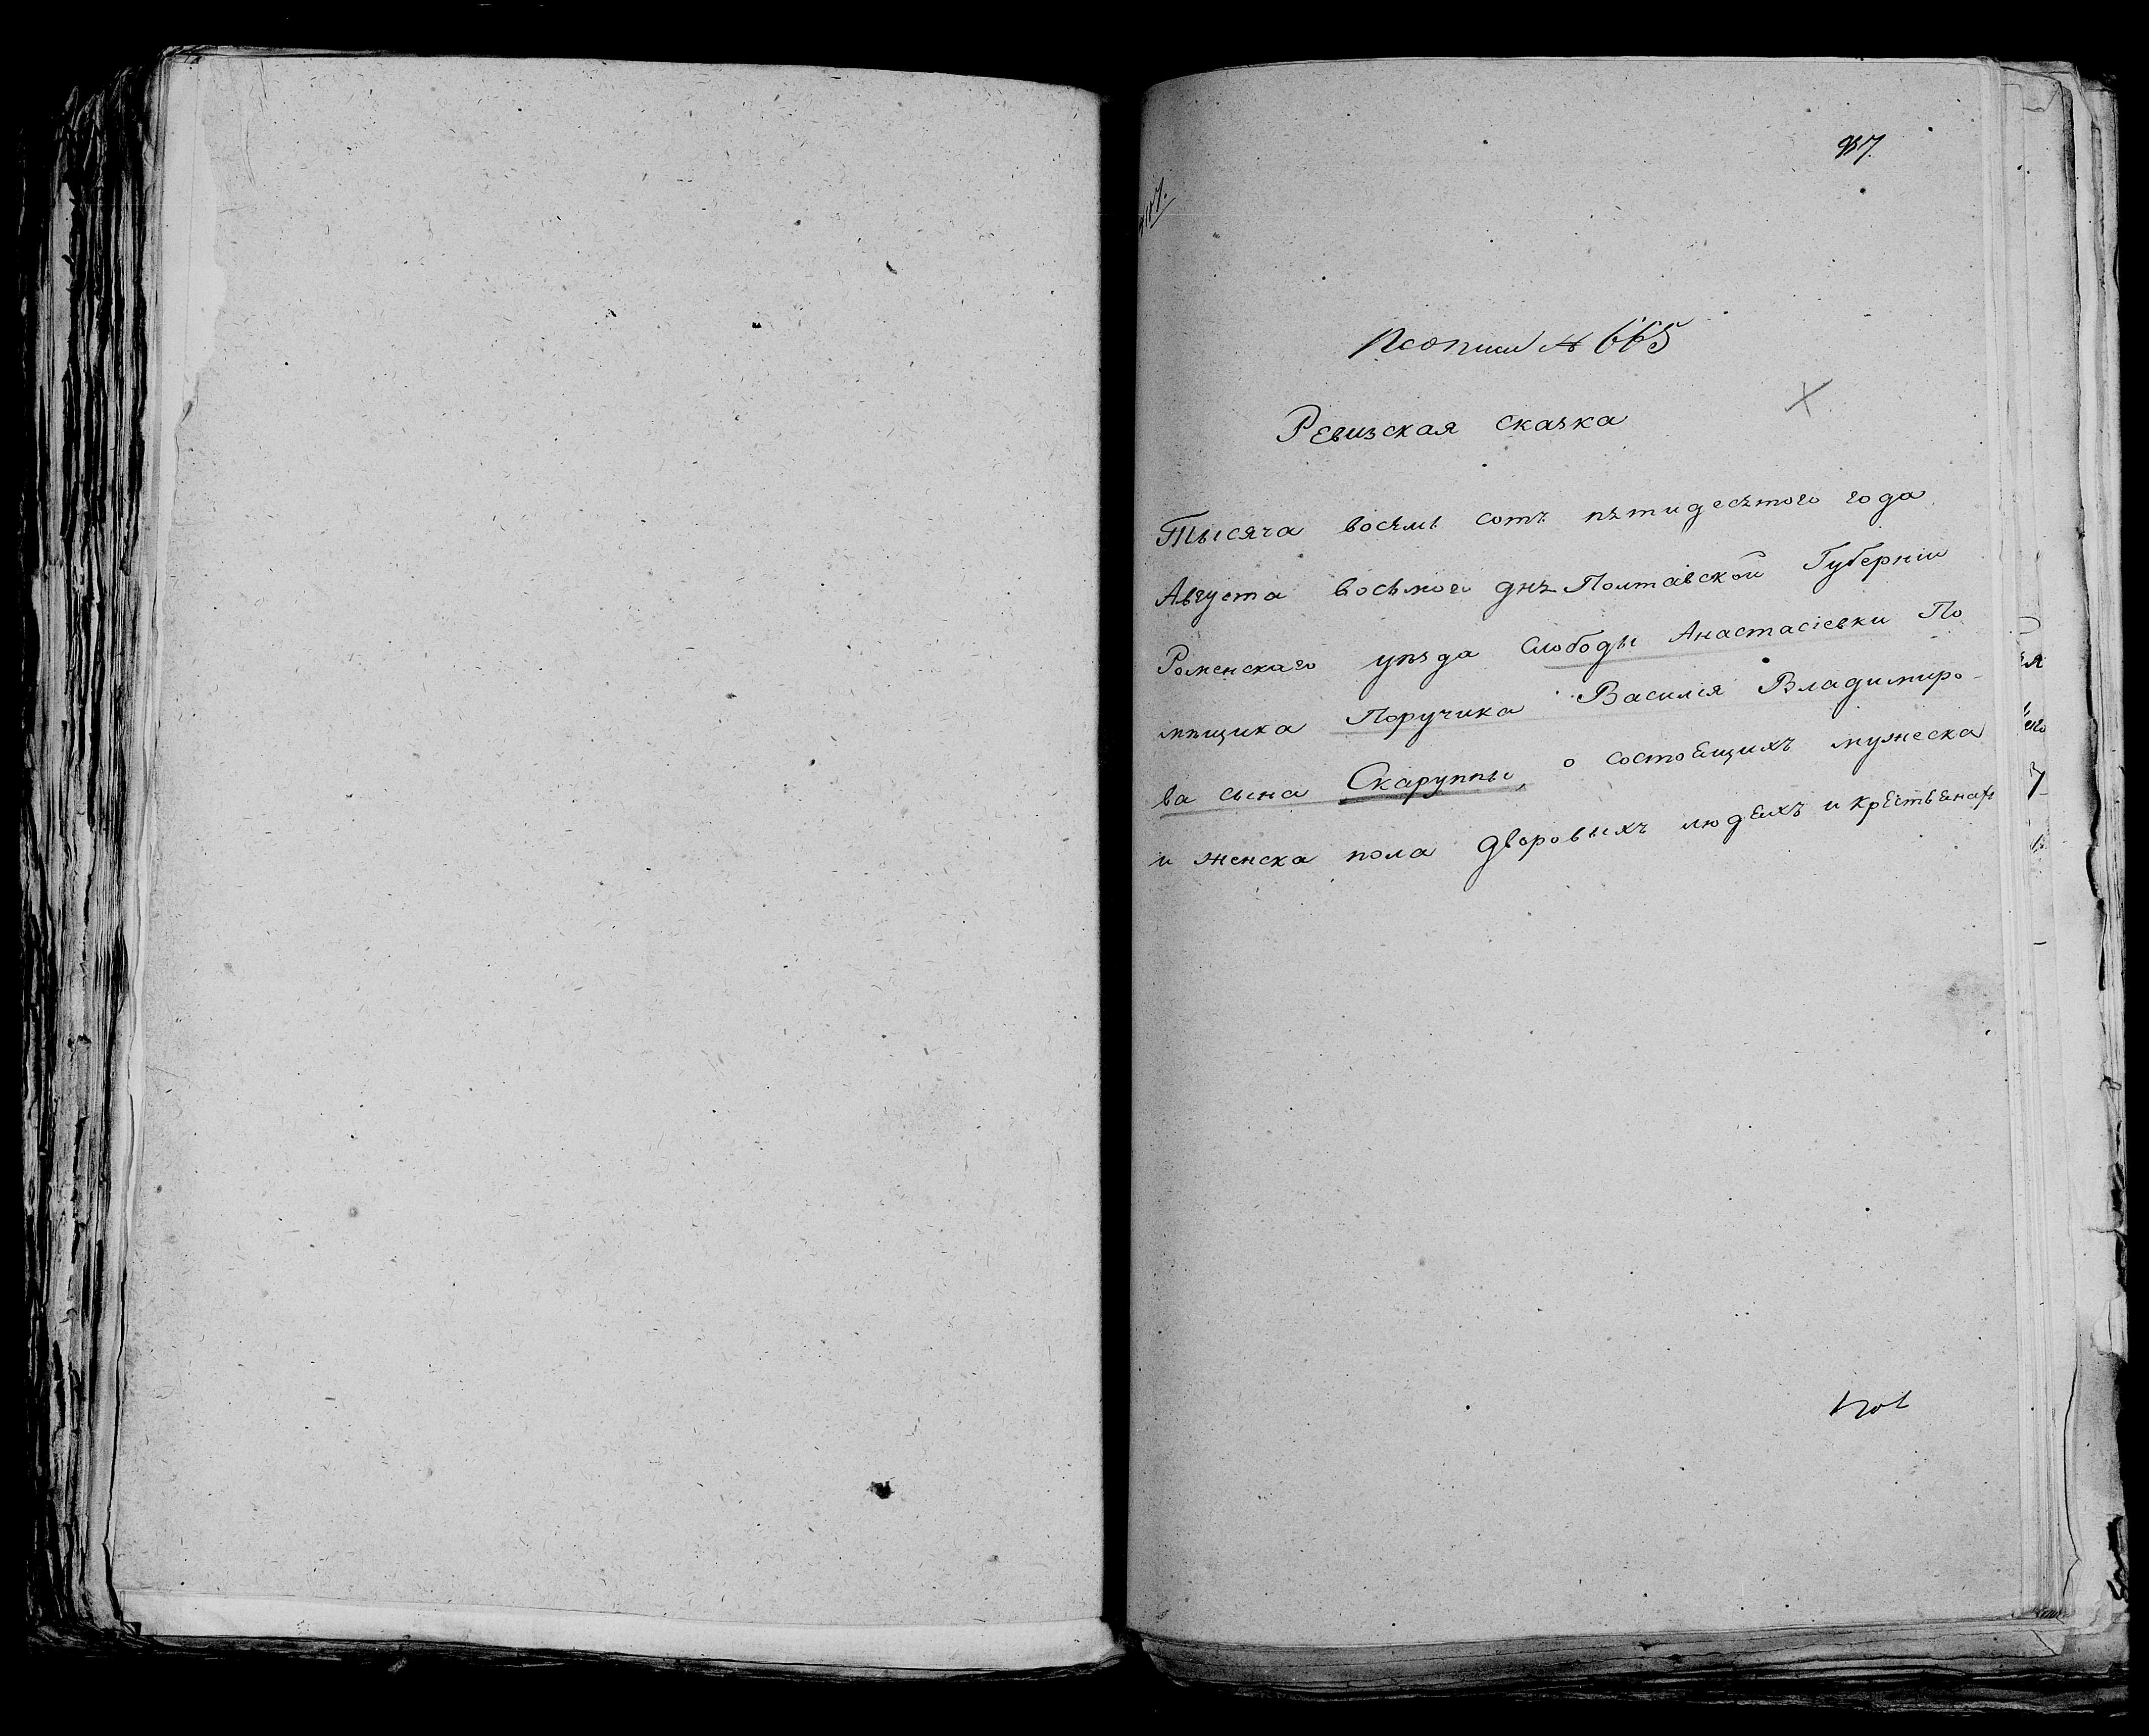 957.
По описи № 665
Ревизская сказка
Тысяча восѣмь сотъ пѣтидесѣтого года
Августа восѣмого днѣ Полтавской Губерніи
Роменскаго уѣзда Слободы Анастасіевки По
мѣщика Поручика Василія Владимиро-
ва сына Скаруппы, о состоещихъ мужеска
и женска пола дворовыхъ людехъ и крестьенахъ